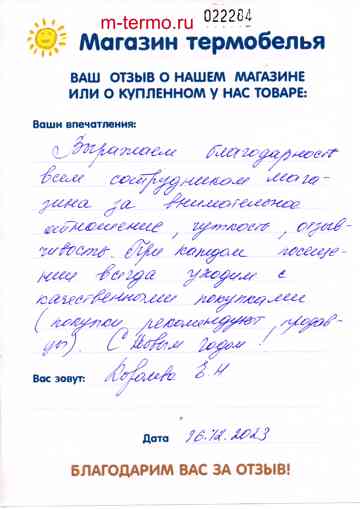 m-termo.ru 022284
Магазин термобелья
ВАШ ОТЗЫВ О НАШЕМ МАГАЗИНЕ
ИЛИ О КУПЛЕННОМ У НАС ТОВАРЕ:
Ваши впечатления:
Выражаем благодарность
всем сотрудникам мага-
зина за внимательное
отношение, чуткость, отзыв-
чивость. При каждом посеще-
нии всегда уходим с
качественными покупками
(покупки рекомендуют продав-
цы). С Новым годом!
Вас зовут: Королева Е.Н
Дата 16.12.2023
БЛАГОДАРИМ ВАС ЗА ОТЗЫВ!